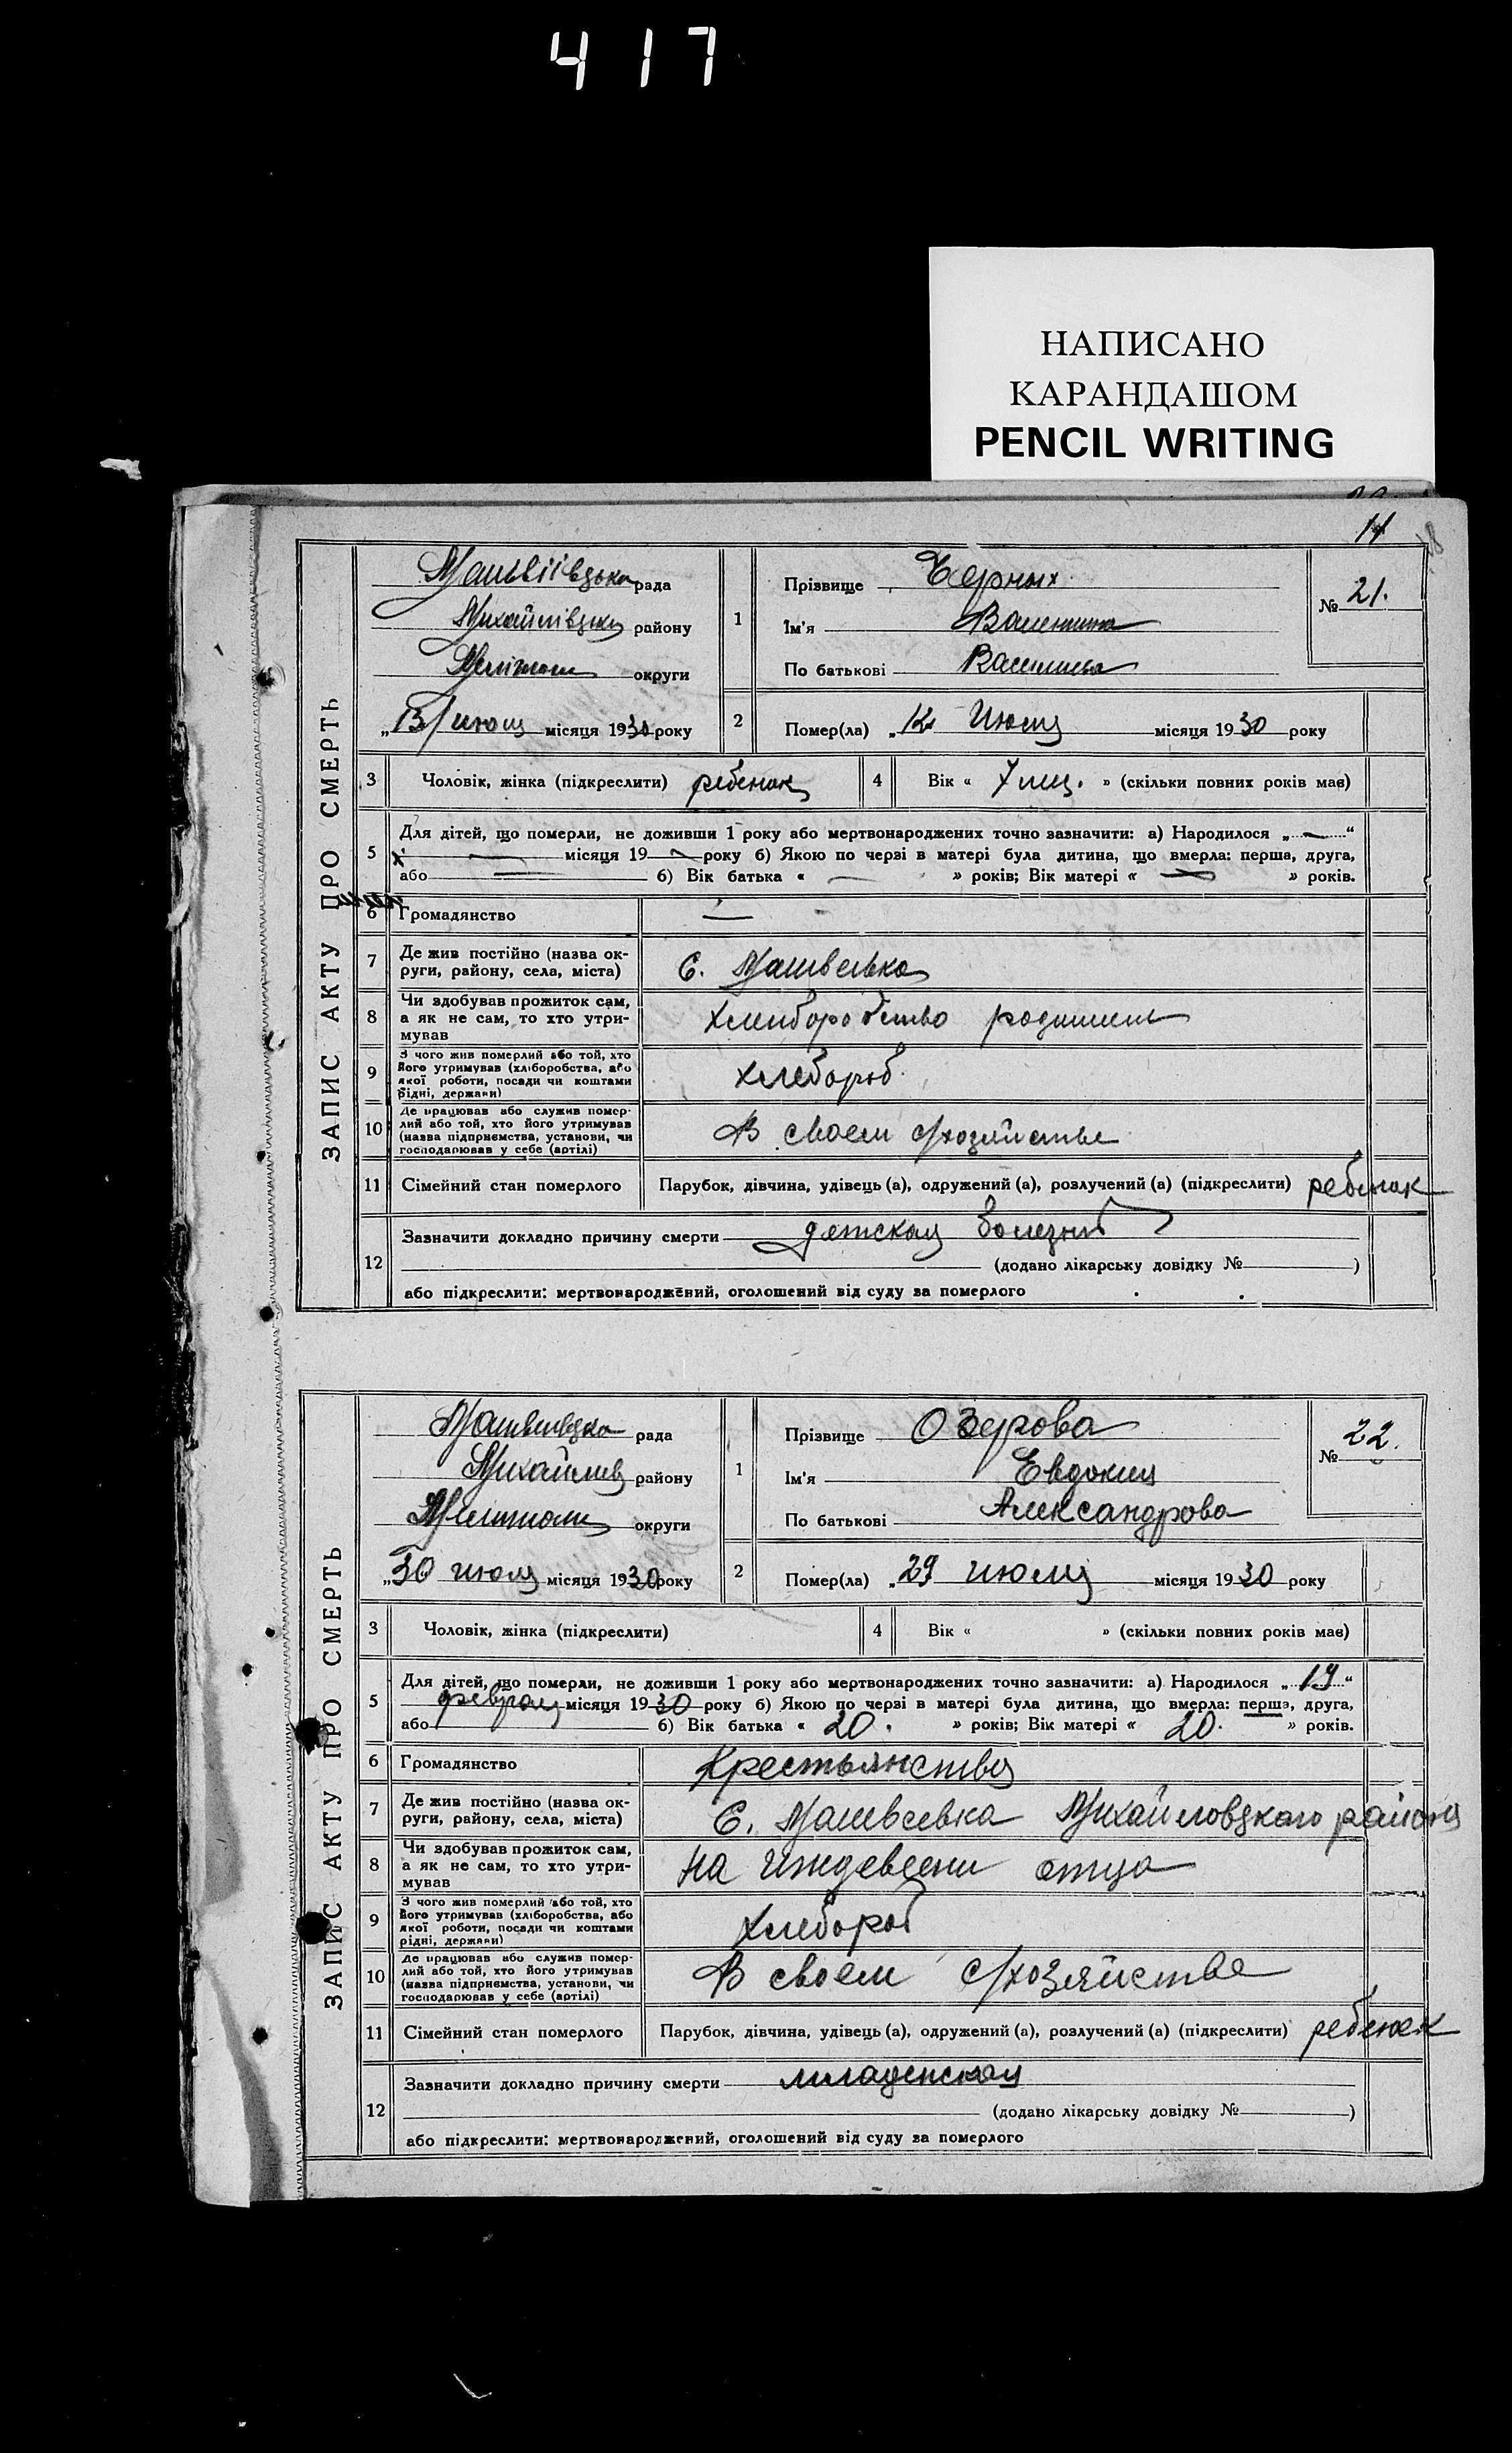 417
НАПИСАНО
КАРАНДАШОМ
PENCIL WRITING
ЗАПИС АКТУ ПРО СМЕРТЬ
Матвіївська рада
Михайлівськ району
Мелітоп округи
„13/ июля місяця 1930 року
1
Прізвище Черных
Ім'я Валентина
По батькові Васильева
№ 21.
2
Помер(ла) „12 Июля місяця 1930 року
3
Чоловік, жінка (підкреслити) ребенок
4
Вік « 7 мц. » (скільки повних років має)
5
Для дітей, що померли, не доживши 1 року або мертвонароджених точно зазначити: а) Народилося „ — “
— місяця 19 — року б) Якою по черзі в матері була дитина, що вмерла: перша, друга,
або — б) Вік батька « — » років; Вік матері « — » років.
6 Громадянство —
7 Де жив постійно (назва ок-
руги, району, села, міста)
С. Матвеевка
8 Чи здобував прожиток сам,
а як не сам, то хто утри-
мував
хлеборобство родители
9 З чого жив померлий або той, хто
його утримував (хліборобства, або
якої роботи, посади чи коштами
рідні, держави)
хлебороб
10 Де працював або служив помер-
лий або той, хто його утримував
(назва підприємства, установи, чи
господарював у себе (артілі)
В своем с/хозяйстве
11 Сімейний стан померлого Парубок, дівчина, удівець (а), одружений (а), розлучений (а) (підкреслити) ребенок
12
Зазначити докладно причину смерти детская болезнь
(додано лікарську довідку № )
або підкреслити: мертвонароджений, оголошений від суду за померлого
ЗАПИС АКТУ ПРО СМЕРТЬ
рада
Михайлив району
Мелитополь округи
„30 июля місяця 1930 року
1
Прізвище Озерова
Ім'я Евдокия
По батькові Александрова
№ 22.
2
Помер(ла) „29 июля місяця 1930 року
3
Чоловік, жінка (підкреслити)
4
Вік « » (скільки повних років має)
5
Для дітей, що померли, не доживши 1 року або мертвонароджених точно зазначити: а) Народилося „19“
февраля місяця 1930 року б) Якою по черзі в матері була дитина, що вмерла: перша, друга,
або б) Вік батька « 20. » років; Вік матері « 20. » років.
6 Громадянство Крестьянства
7 Де жив постійно (назва ок-
руги, району, села, міста)
С. Матвеевка Михайловского района
8 Чи здобував прожиток сам,
а як не сам, то хто утри-
мував
на иждевеени отца
9 З чого жив померлий або той, хто
його утримував (хліборобства, або
якої роботи, посади чи коштами
рідні, держави)
хлебороб
10 Де працював або служив помер-
лий або той, хто його утримував
(назва підприємства, установи, чи
господарював у себе (артілі)
В своем с/хозяйстве
11 Сімейний стан померлого Парубок, дівчина, удівець (а), одружений (а), розлучений (а) (підкреслити) ребенок
12
Зазначити докладно причину смерти младенская
(додано лікарську довідку № )
або підкреслити: мертвонароджений, оголошений від суду за померлого